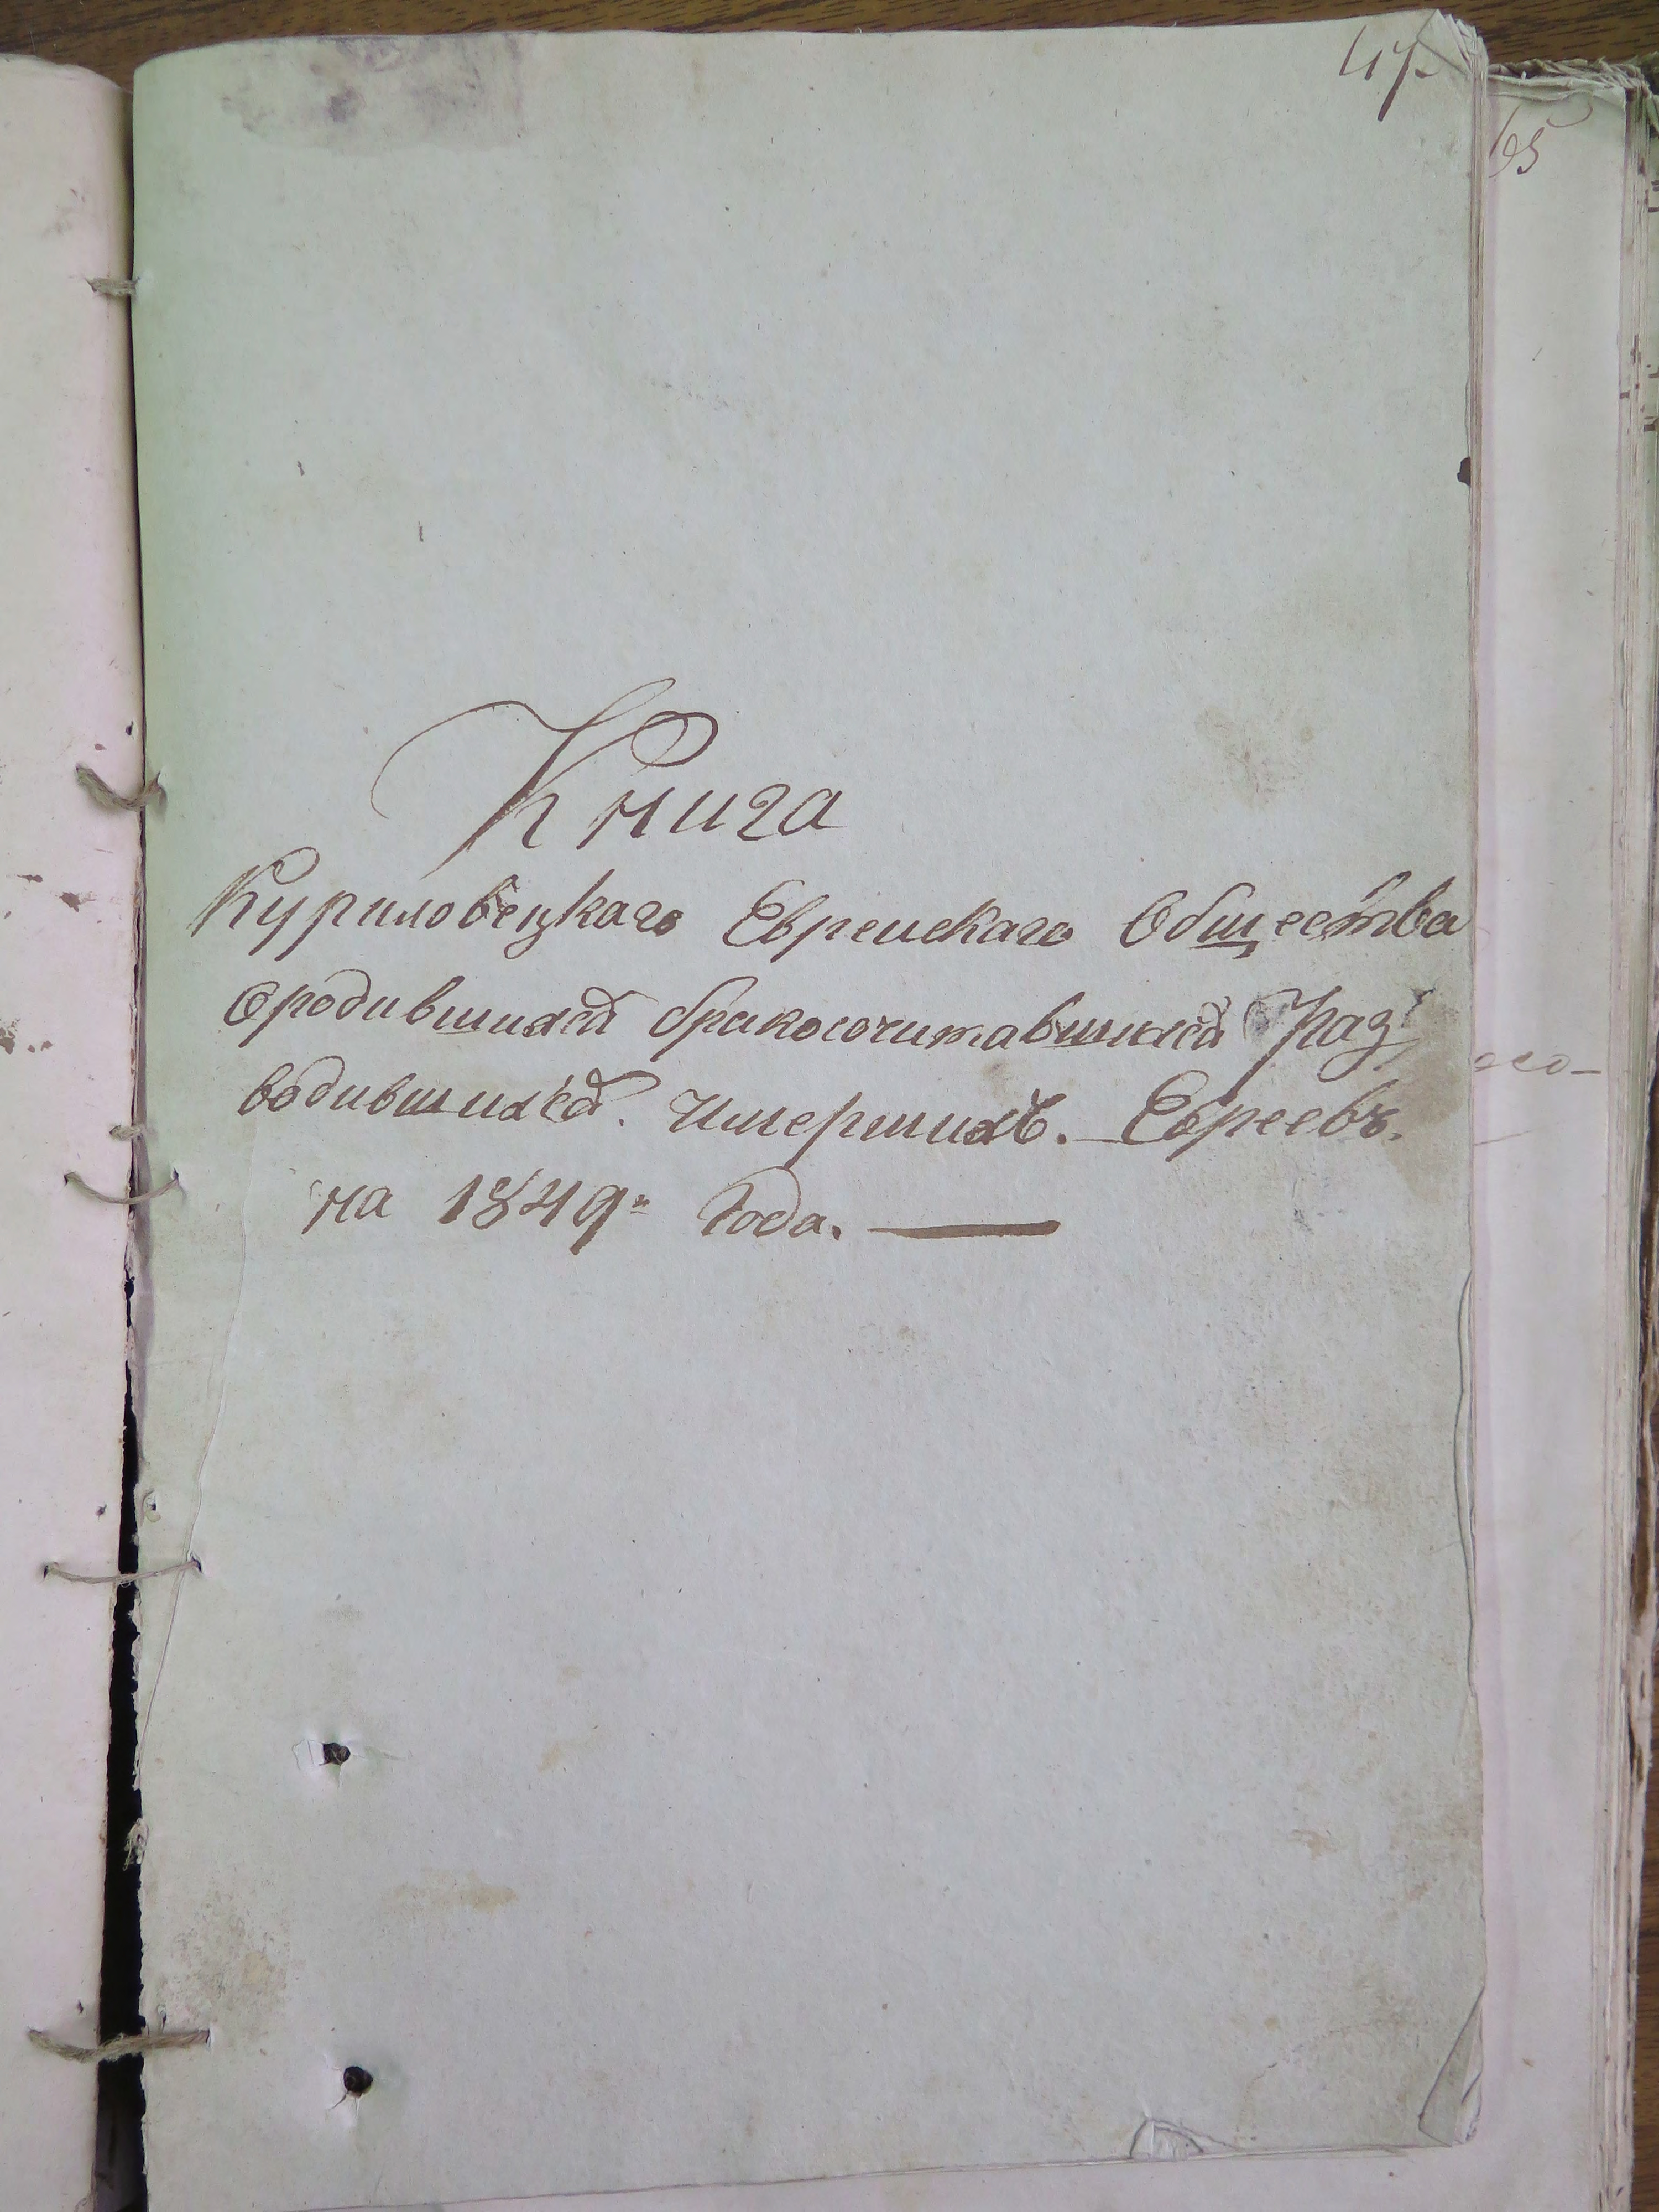 47.
65
Книга
Куриловецкаго Евреискаго Общества
Ородившихся бракосочитавшихся Раз
водившихся. Имершихъ. Евреевъ.
на 1849: Года.